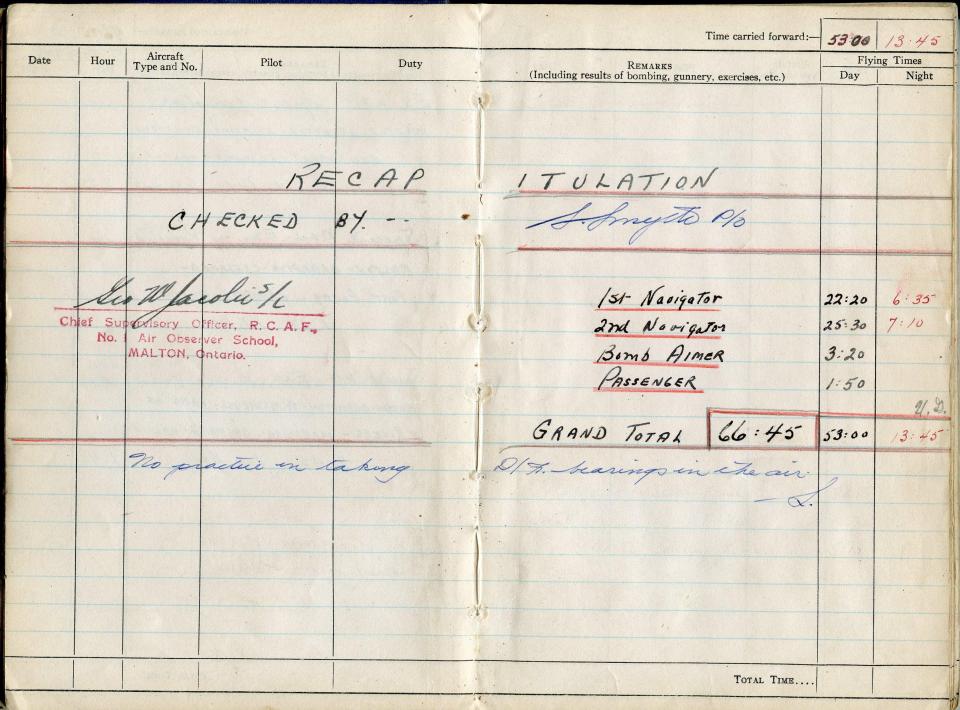 Time carried forward:— 53:00 13:45
Date Hour Aircraft Type and No. Pilot Duty REMARKS (Including results of bombing, gunnery, exercises, etc.) Flying Times Day Night
RECAPITULATION
CHECKED BY. -- S. Smyth P/O
Geo W Jacobi S/L
Chief Supervisory Officer, R.C.A.F.,
No. 1 Air Observer School,
MALTON, Ontario.
1st Navigator 22:20 6:35
2nd Navigator 25:30 7:10
BOMB AIMER 3:20
PASSENGER 1:50
GRAND TOTAL 66:45 53:00 13:45
No practice in taking D/F. bearings in the air.
— S.
TOTAL TIME....